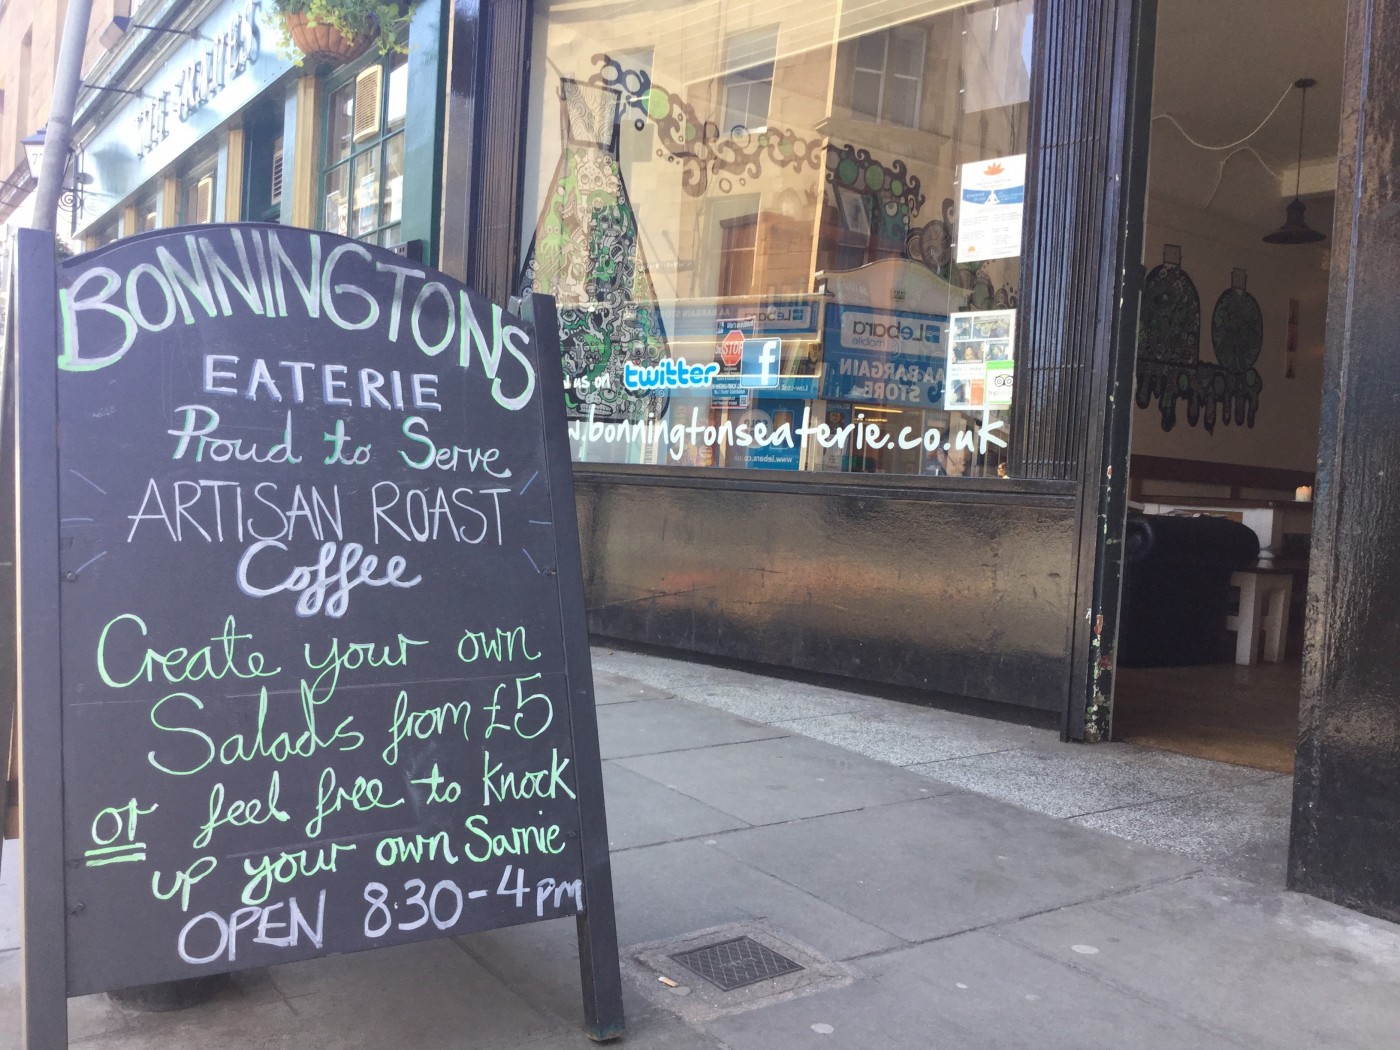 BONNINGTONS
EATERIE
Proud to Serve
ARTISAN ROAST
Coffee
Create your own
Salads from £5
or feel free to knock
up your own Sarnie
OPEN 8.30-4pm
us on twitter f
w.bonningtonseaterie.co.uk
STOP
Lebara
Lebara
mobile
BARGAIN
STORE